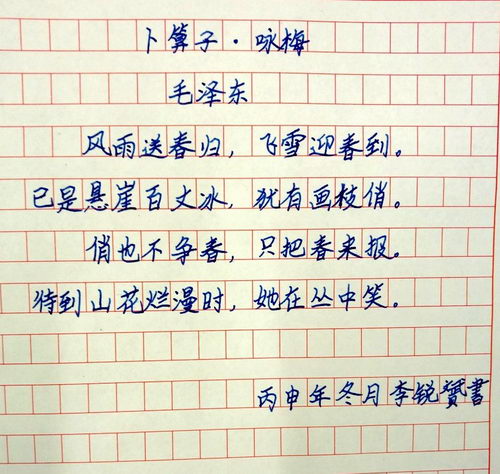 卜算子·咏梅
毛泽东
风雨送春归，飞雪迎春到。
已是悬崖百丈冰，犹有画枝俏。
俏也不争春，只把春来报。
待到山花烂漫时，她在丛中笑。
丙申年冬月李锐赟書